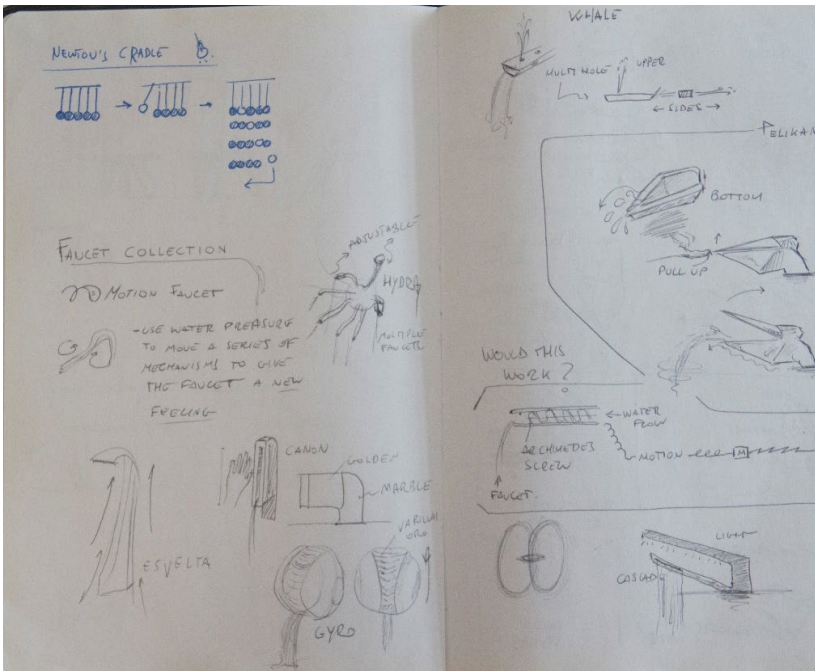 NEWTON'S CRADLE
FAUCET COLLECTION
MOTION FAUCET
-USE WATER PREASURE
TO MOVE A SERIES OF
MECHANISMS TO GIVE
THE FAUCET A NEW
FEELING
ADJUSTABLE
HYDRA
MULTIPLE
FAUCETS
ESVELTA
CANON
GOLDEN
MARBLE
VARILLAS
ORO
GYRO
WHALE
MULTI HOLE
UPPER
SIDES
PELIKAN
BOTTOM
PULL UP
WOULD THIS
WORK?
WATER
FLOW
ARCHIMEDES
SCREW
MOTION
M
FAUCET.
LIGHT
CASCADE